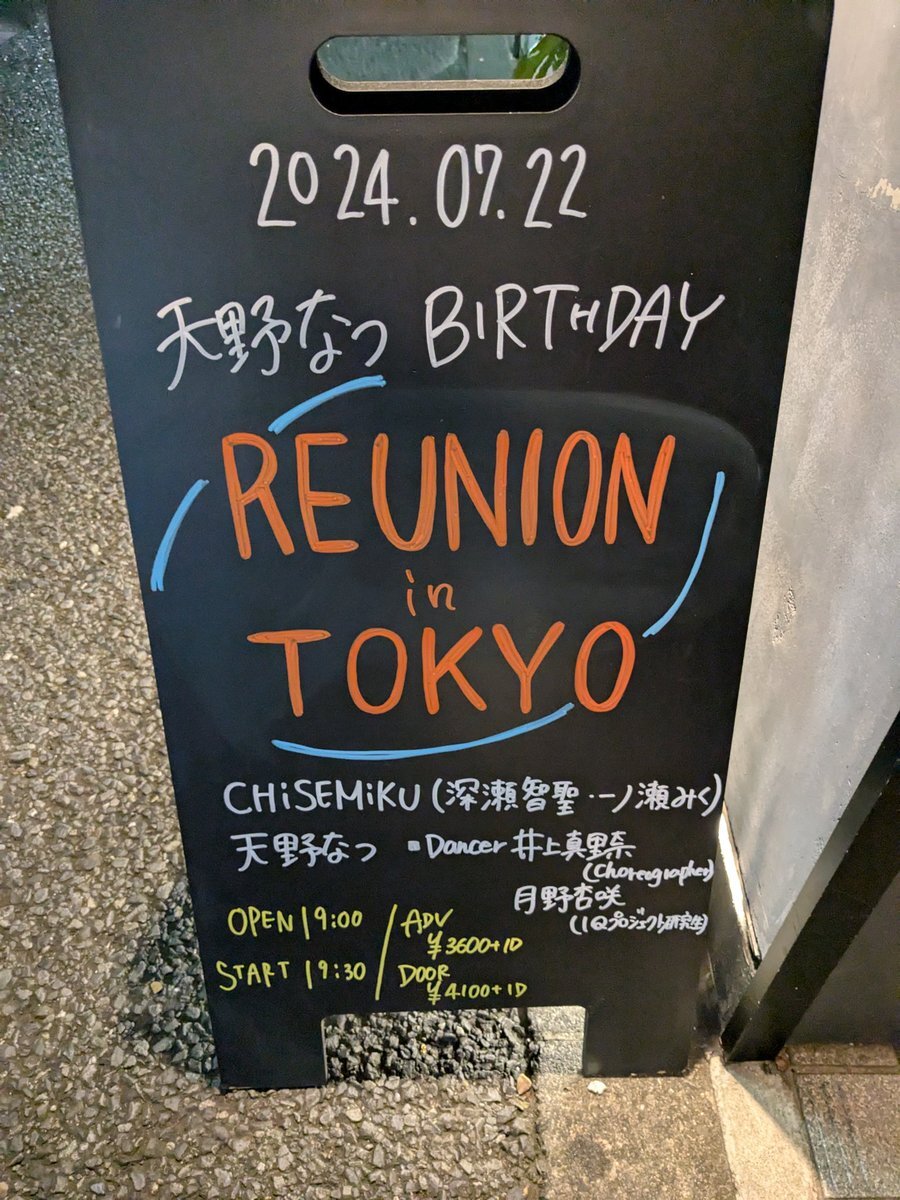 2024.07.22
天野なつ BIRTHDAY
REUNION
in
TOKYO
CHiSEMiKU (深瀬智聖・一ノ瀬みく)
天野なつ ▪Dancer 井上真里奈
(Choreographer)
月野杏咲
(IQプロジェクト研究生)
OPEN 19:00 / ADV
¥3600+1D
START 19:30 DOOR
¥4100+1D